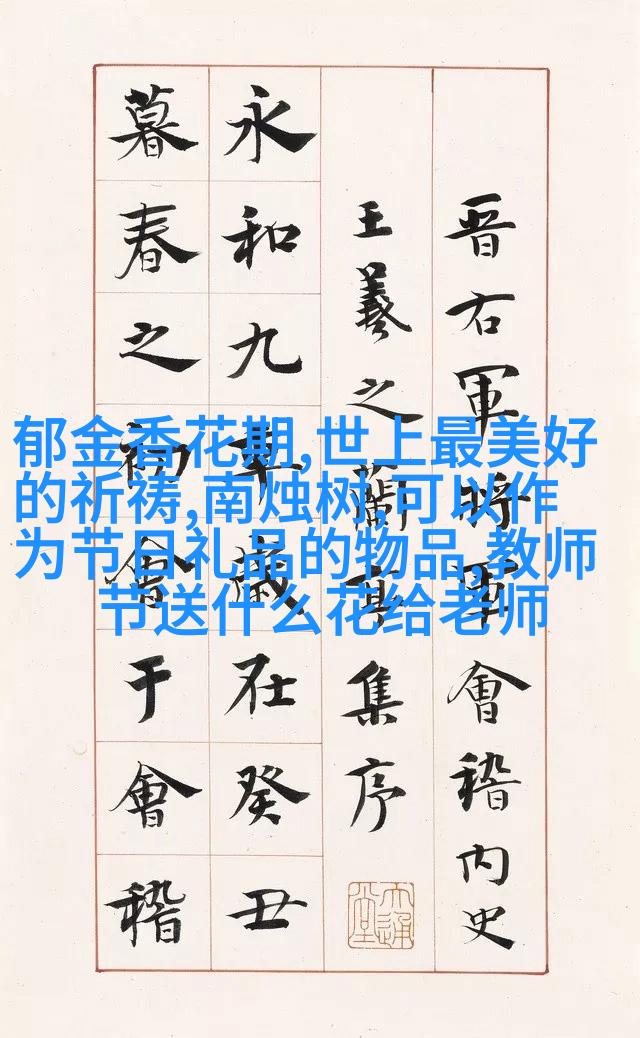 晋右軍將軍會稽内史
王羲之蘭亭集序
永和九年歲在癸丑
暮春之初會于會稽
郁金香花期,世上最美好
的祈祷,南烛树,可以作
为节日礼品的物品,教师
节送什么花给老师